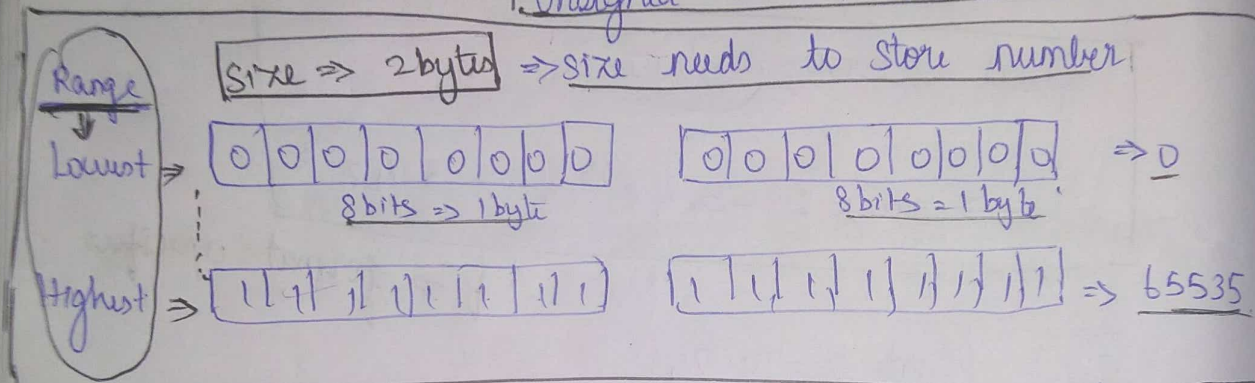 1. Unsigned
Range
size => 2 bytes => size needs to store number
Lowest => 0 0 0 0 0 0 0 0 0 0 0 0 0 0 0 0 => 0
8 bits => 1 byte 8 bits = 1 byte
Highest => 1 1 1 1 1 1 1 1 1 1 1 1 1 1 1 1 => 65535